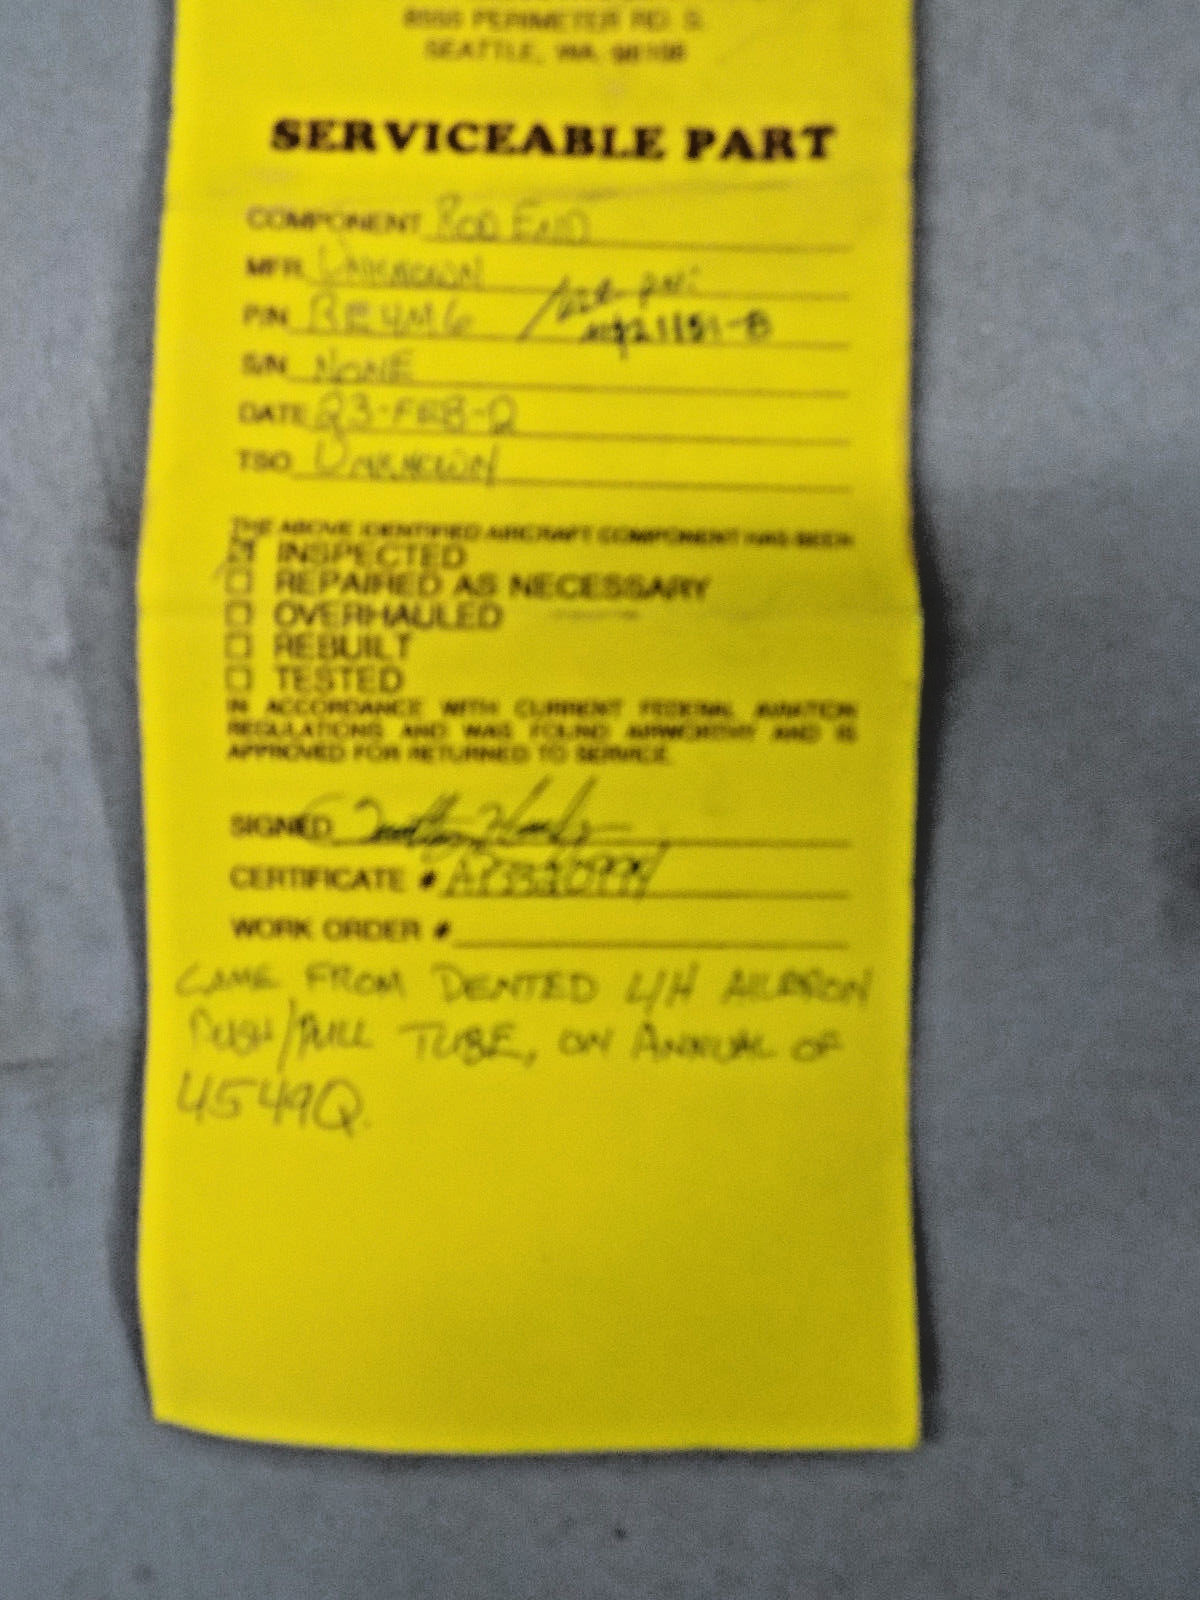 PERIMETER RD. S.
SEATTLE, WA. 98108
SERVICEABLE PART
COMPONENT ROD END
MFR. UNKNOWN
P/N RE4M6
21151-8
S/N NONE
DATE 23-FEB-
TSO UNKNOWN
THE ABOVE IDENTIFIED AIRCRAFT COMPONENT HAS BEEN
INSPECTED
☐ REPAIRED AS NECESSARY
☐ OVERHAULED
☐ REBUILT
☐ TESTED
IN ACCORDANCE WITH CURRENT FEDERAL AVIATION
REGULATIONS AND WAS FOUND AIRWORTHY AND IS
APPROVED FOR RETURNED TO SERVICE.
SIGNED
CERTIFICATE #
WORK ORDER #
CAME FROM DENTED L/H AILERON
PUSH/PULL TUBE, ON ANNUAL OF
4549Q.